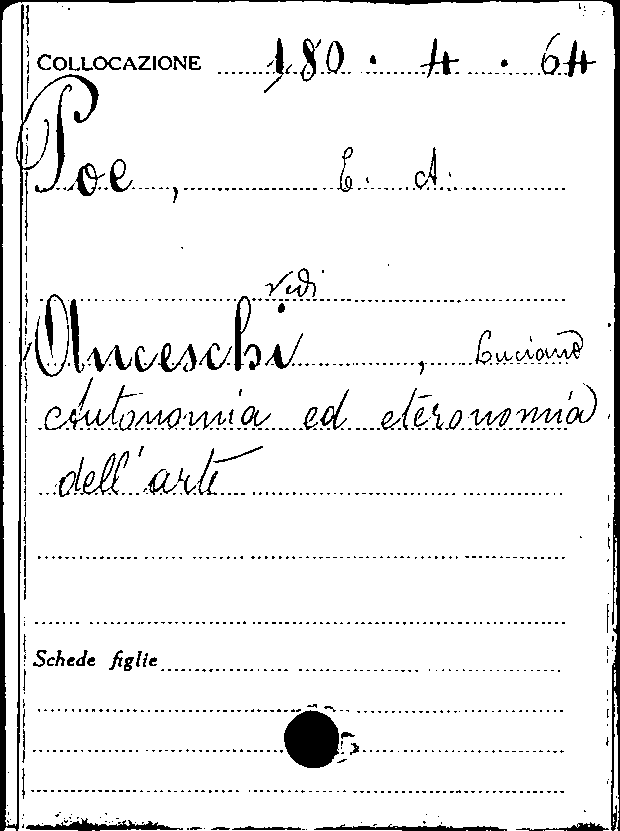 COLLOCAZIONE 180 · 4 · 64
Poe, E. A.
vedi
Anceschi, Luciano
Autonomia ed eteronomia
dell'arte
Schede figlie